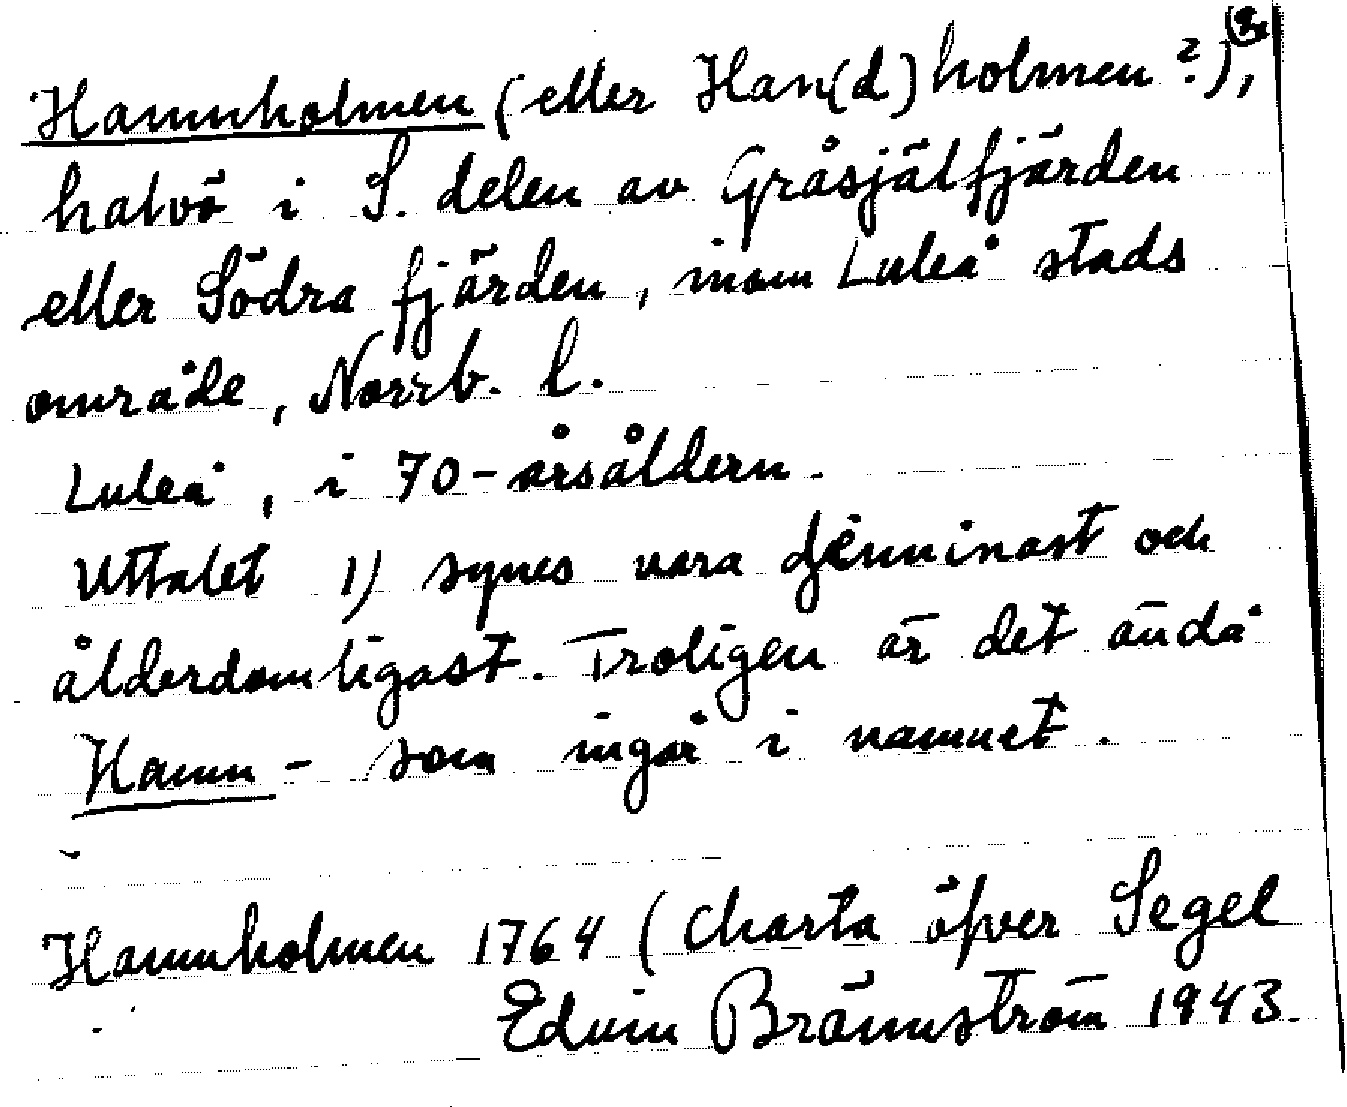 Hamnholmen (eller Han(d)holmen ?),
halvö i S. delen av Gråsjälfjärden
eller Södra fjärden, inom Luleå stads
område, Norrb. l.
Luleå, i 70-årsåldern.
Uttalet 1) synes vara genuinast och
ålderdomligast. Troligen är det ändå
Hamn- som ingår i namnet.
Hamnholmen 1764 (Charta öfver Segel
Edvin Brännström 1943.